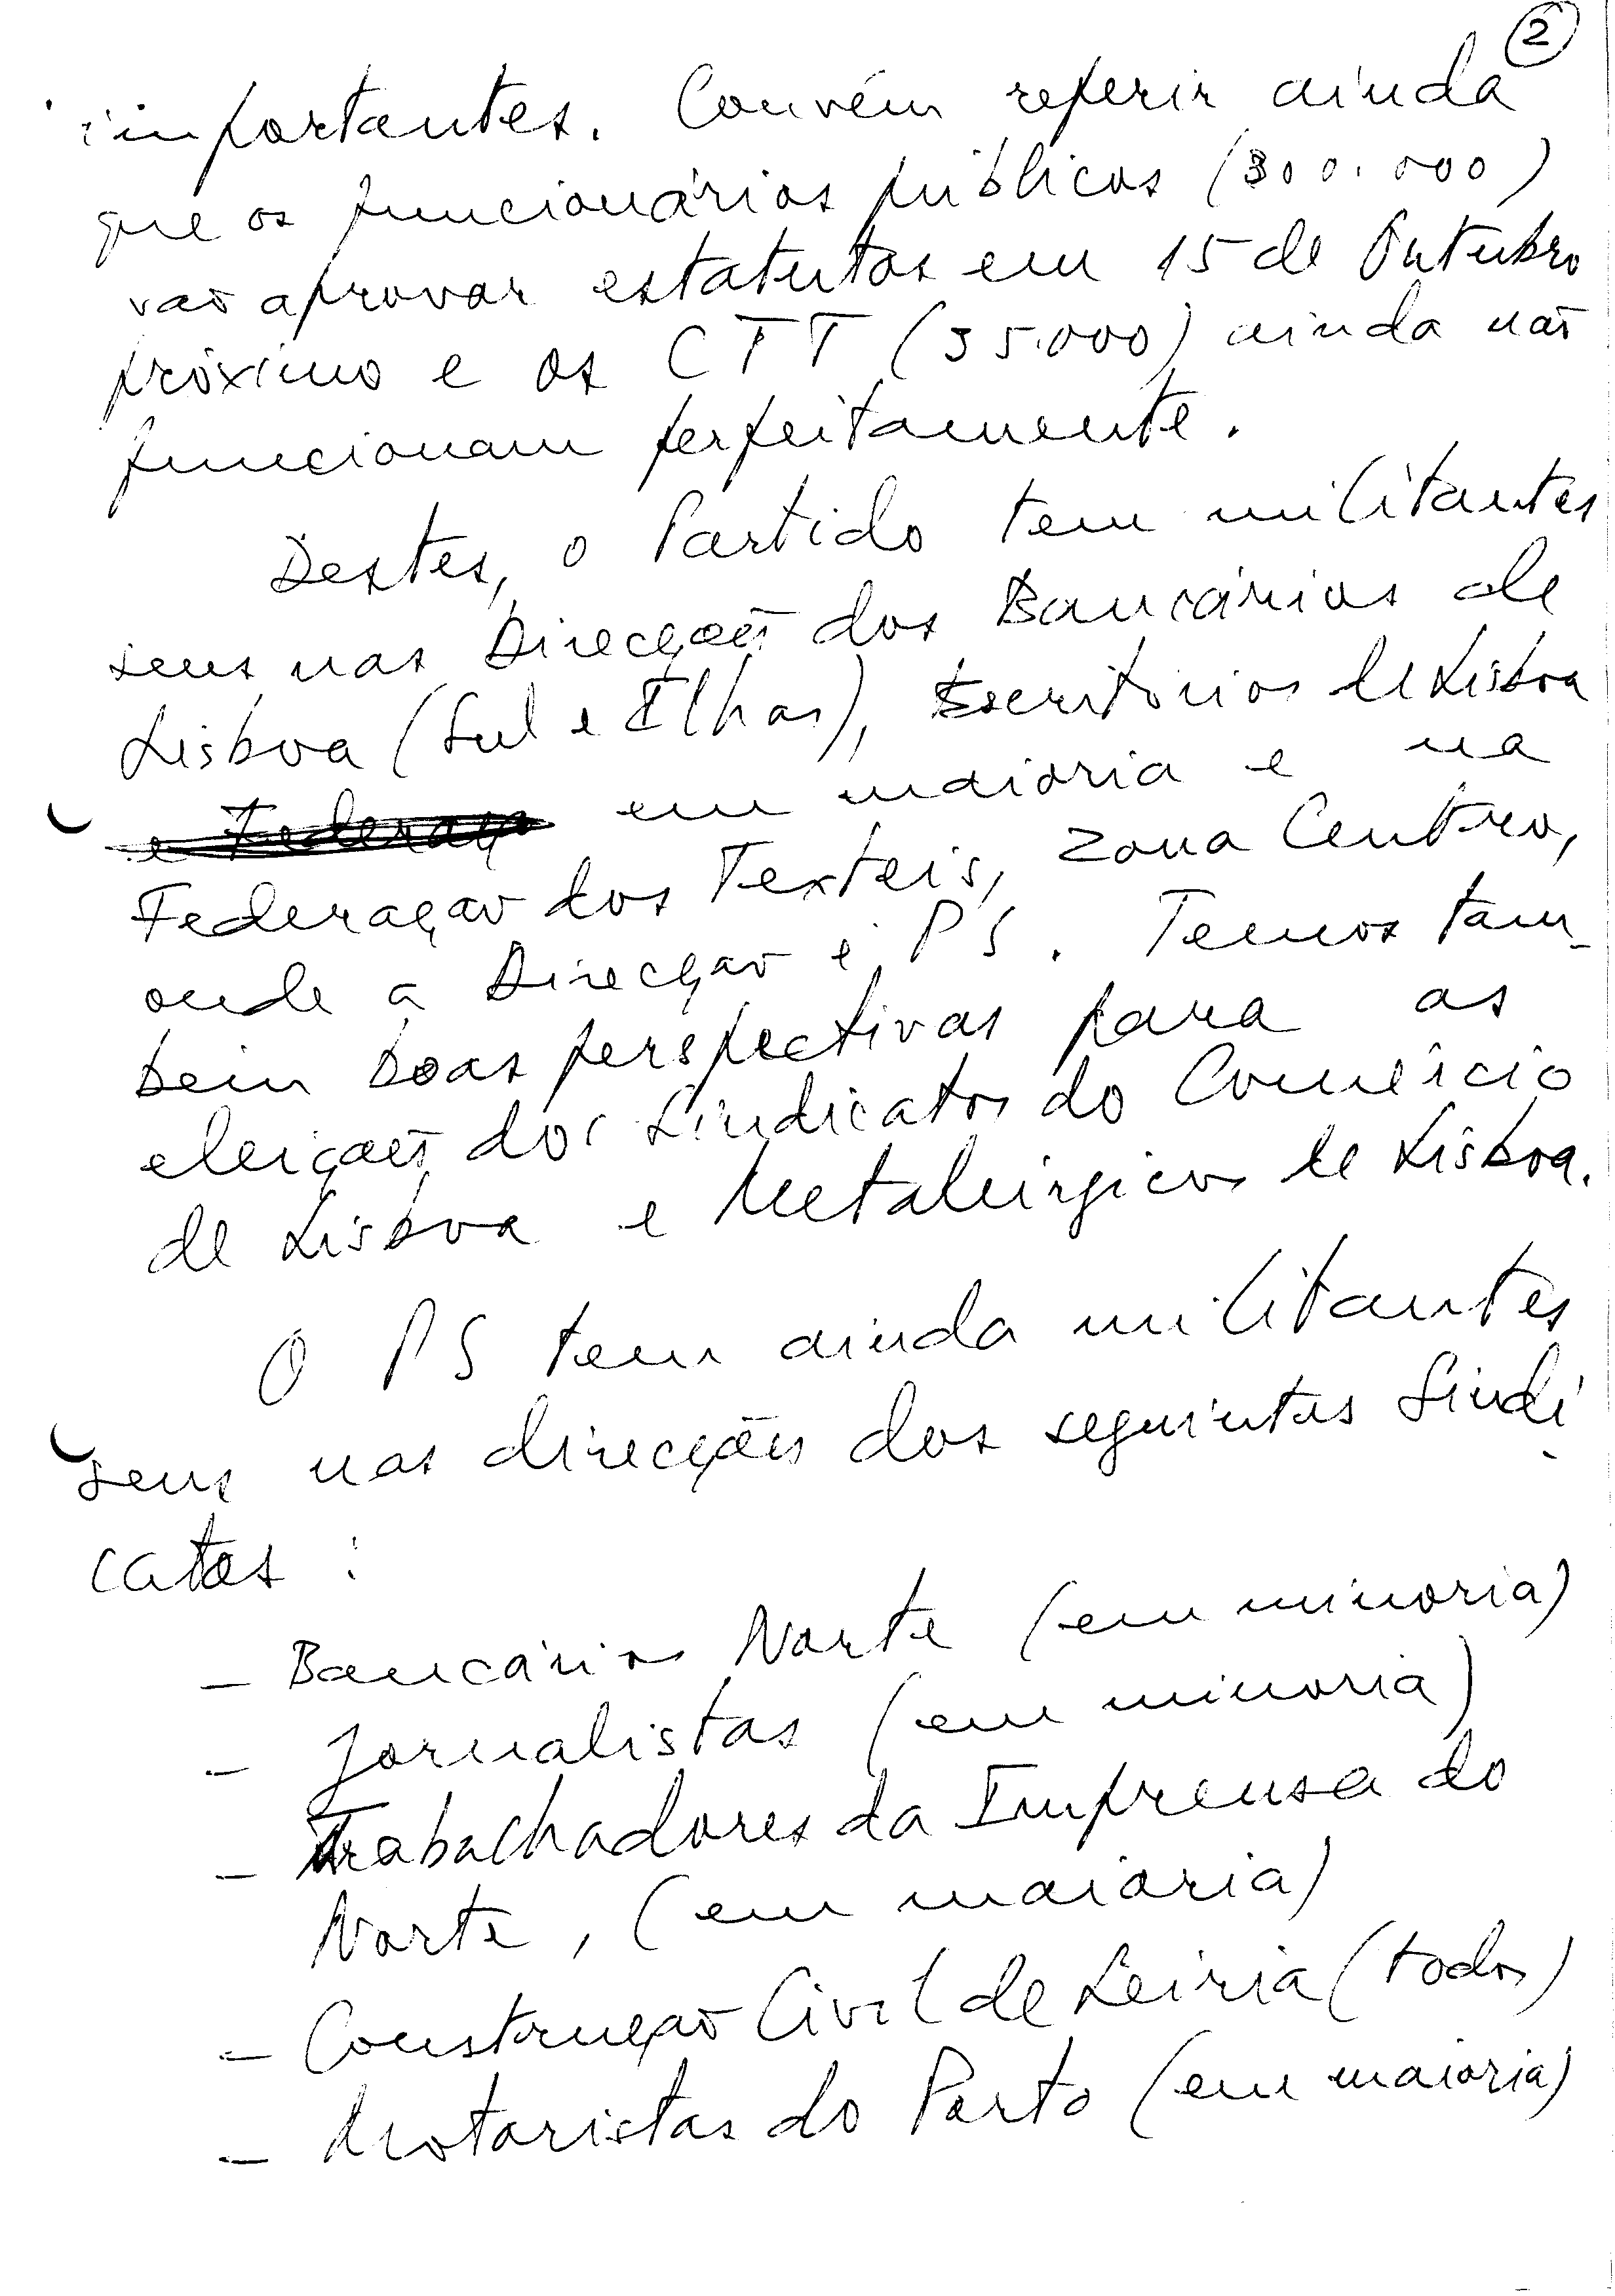 2
importantes. Convém referir ainda
que os funcionários públicos (300.000)
vão aprovar estatutos em 15 de Outubro
próximo e os CTT (35.000) ainda não
funcionam perfeitamente.
Destes, o Partido tem militantes
seus nas Direcções dos Bancários de
Lisboa (Sul e Ilhas), Escritórios de Lisboa
e Federaçã em maioria e na
Federação dos Texteis, Zona Centro,
onde a Direcção é PS. Temos tam-
bém boas perspectivas para as
eleições dos Sindicatos do Comércio
de Lisboa e Metalúrgicos de Lisboa.
O PS tem ainda militantes
seus nas direcções dos seguintes Sindi-
catos :
- Bancários Norte (em minoria)
- Jornalistas (em minoria)
- Trabalhadores da Imprensa do
Norte, (em maioria)
- Construção Civil de Leiria (todos)
- Motoristas do Porto (em maioria)